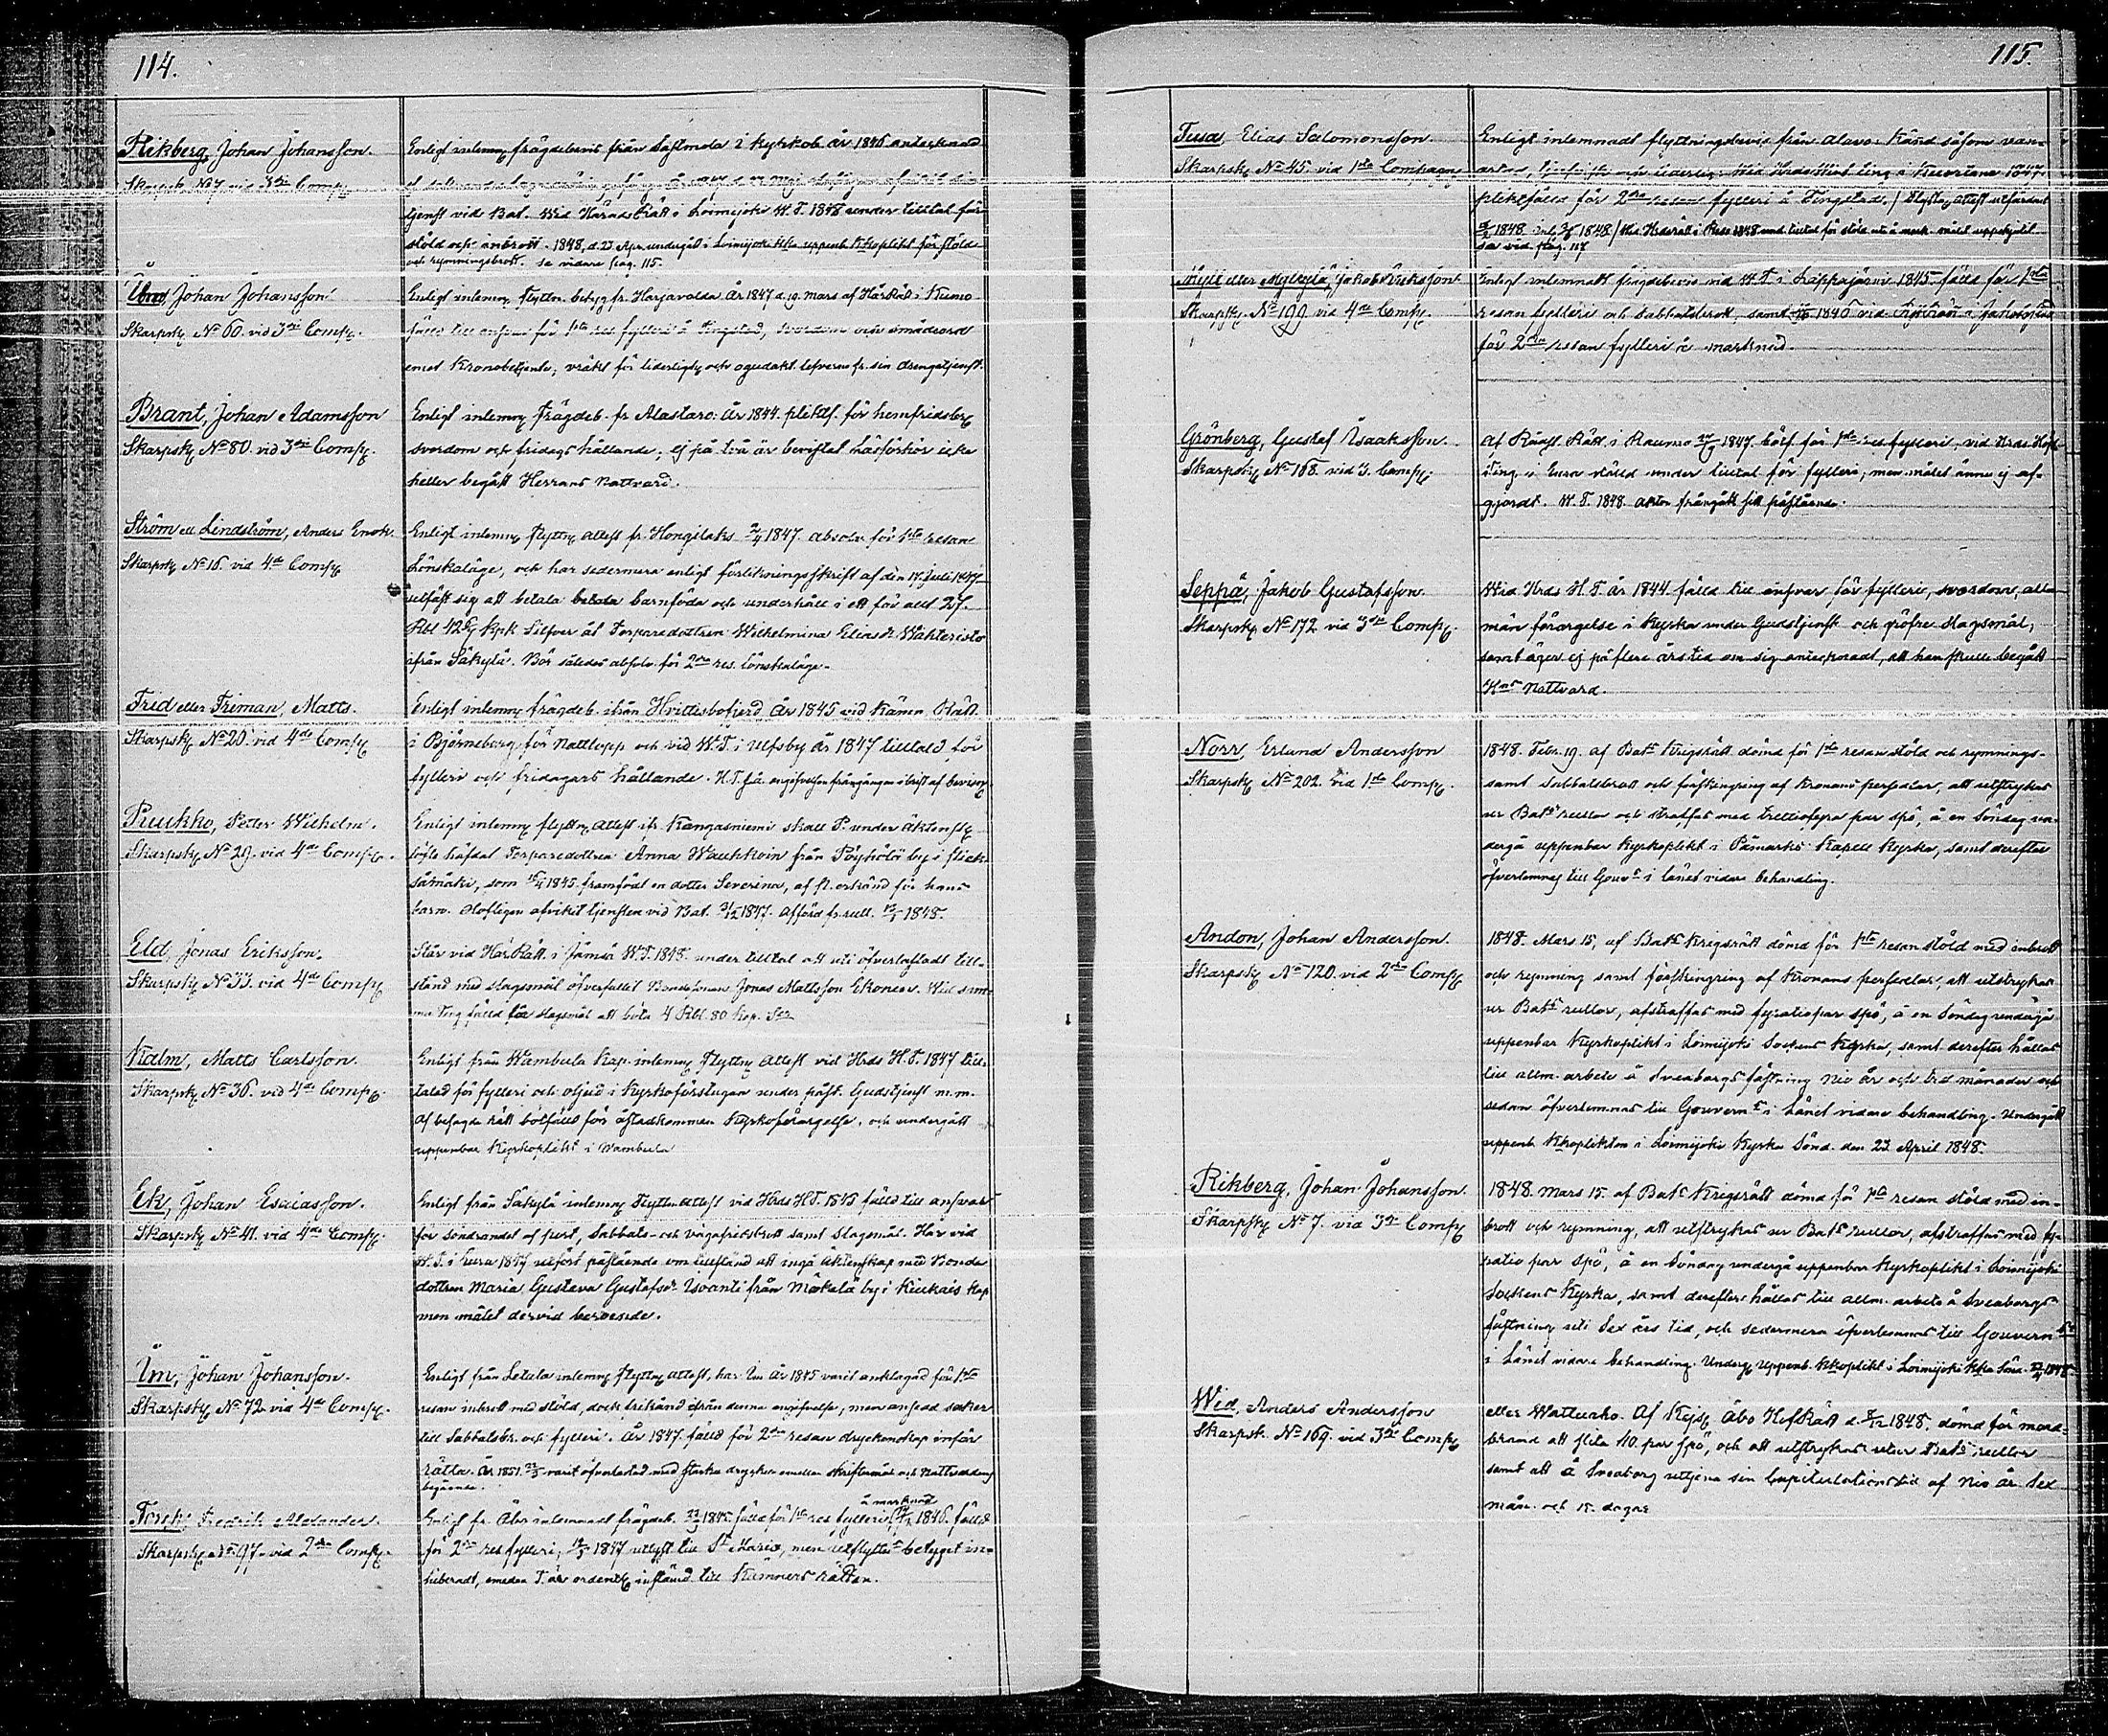 114.
Rikberg, Johan Johansson.
Skarpsk. No 7 vid 3die Comp.
Enligt inlemn. frägdebevis från Sastmola i kyrkob. år 1846 antecknad
tjenst vid Bat. Wid HäradsRätt i Loimijoki W. T. 1848 under tilltal för
stöld och inbrott. 1848, d. 23 Apr. undergått i Loimijoki Kka uppenb. Kkoplikt för stöld
och rymningsbrott. se vidare pag. 115.
Johan Johansson
Skarpsk. No 60. vid 3die Comp.
Enligt inlemn. flyttn. betyg fr. Harjavalda År 1847 d. 19. Mars af HäRätt i Kumo
fälld till ansvar för 1sta res fylleri å tingstad, svordom och smädeord
emot Kronobetjente, vräkt för liderligt och ogudakt. lefverne fr. sin drengetjenst.
Brant, Johan Adamsson
Skarpsk. No 80. vid 3die Comp.
Enligt inlemn. Frägdeb. fr Alastaro: År 1844. pliktf. för hemfridsbr.
svordom och fridags hållande; ej på två år bevistat läsförhör icke
heller begått Herrans Nattvard.
Ström ell Lindström, Anders Enok.
Skarpsk. No 16. vid 4de Comp.
Enligt inlemn. flyttn. attest fr. Hongilaks 2/4 1847. absolv. för 1sta resan
Lönskaläge, och har sedermera enligt förlikningsskrift af den 17. Juli 1847
utfäst sig att betala betala barnföda och underhåll i ett för allt 27.
Rbl 42 6/7 Kpk Silfver åt Torparedottren Wilhelmina Eliasdr Wahteristo
ifrån Säkylä. Bör således absolv. för 2dra res. Lönskaläge.
Frid eller Friman, Matts.
Skarpsk. No 20. vid 4de Comp.
Enligt inlemn. frägdeb. ifrån Hvittisbofjerd År 1845 vid Kämn. Rätt
i Björneborg för Nattlopp och vid W. T. i Ulfsby År 1847 tilltald för
fylleri och fridagars hållande.
Puukko, Petter Wilhelm.
Skarpsk. No 29. vid 4de Comp.
Enligt inlemn. flyttn. attest ifr. Kangasniemi skall P. under äktensk.
löfte häfdat Torparedottren Anna Wauhkoin från Pöyhölö by i Hauk
som 1845. framfödt en dotter Severina, af P. erkänd för hans
barn. Olofligen afvikit tjensten vid Bat. 3/12 1847. Afförd fr. rull. 1848.
Eld, Jonas Eriksson.
Skarpsk. No 33. vid 4de Comp.
Står vid HäRätt i Jämsä W. T. 1848. under tilltal att uti öfverlastadt till-
stånd med slagsmål öfverfallit Bondesonen Jonas Mattsson Ekonen. Wid sam-
ma Ting fälld för slagsmål att böta 4 Rbl. 80 kop. Sr
Kalm, Matts Carlsson.
Skarpsk. No 36. vid 4de Comp.
Enligt från Wambula Kap. inlemn. flyttn. attest vid Hrds H. T. 1847 till-
talad för fylleri och oljud i Kyrkoförstugan under påst. Gudstjenst m.m.
Af besagde rätt bötfälld för åstadkommen Kyrkoförargelse, och undergått
uppenbar Kyrkoplikt i Wambula
Ek, Johan Esaiasson.
Skarpsk. No 41. vid 4de Comp.
Enligt från Säkylä inlemn. flyttn. attest vid Hrds H. T. 1843 fälld till ansvar
för Sabbats- och vägafridsbrott samt Slagsmål. Har vid
W. T. i Eura 1847 utfört påstående om tillstånd att ingå Äktenskap med Bonde
dottren Maria Gustava Gustafsdr Uvanti från Mäkelä by i Kiukais Kap
men målet dervid beroende.
Ũm, Johan Johansson.
Skarpsk. No 72 vid 4de Comp.
Enligt från Letala inlemn. flyttn. attest, har Um År 1845 varit anklagad för 1sta
resan inbrott med stöld, dock frikänd ifrån denna angifvelse, men ansedd saker
till Sabbatsbr. och fylleri. År 1847. fälld för 2dra resan dryckenskap inför
rätta. År 1851. 23/3 varit öfverlastad med starka drycker emellan skriftermål och Nattvardens
begående.
Torsk, Fredrik Alexander.
Skarpsk. No 97. vid 2dra Comp.
å marknad
Enligt fr. Åbo inlemnadt frägdeb. 1845. fälld för 1sta res fylleri, 1846. fälld
för 2dra res fylleri, 1847 utflytt till St Marie, men utflyttn. betyget in-
hiberadt, emedan T. är ordentl. instämd till Kämners rätten.
115.
Tusa, Elias Salomonsson.
Skarpsk. No 45. vid 1sta Compagn.
Enligt inlemnadt flyttningsbevis från Alavo. Känd såsom van-
artad, och liderlig. Wid Häradshöst ting i Kuortane 1847.
pliktfälld för 2dra resan fylleri å Tingstad. / Flyttn. attest utfärdad
1848. 1848 /
se vid. pag. 117
Myll eller Myllylä, Jakob Eriksson
Skarpsk. No 199 vid 4de Comp.
Enligt inlemnadt frägdebevis vid W. T. i Lappajärvi 1845 fälld för 1sta
resan fylleri och Sabbatsbrott, samt 1846 vid i Jakobstad
för 2dra resan fylleri å marknad.
Grönberg, Gustaf Isaaksson.
Skarpsk. No 168. vid 3. Comp.
Af Rådst. Rätt i Raumo 1847. bötf. för 1sta res fylleri, vid Hrds Höst
ting i Eura ställd under tilltal för fylleri, men målet ännu ej af-
gjordt. W. T. 1848. aktor frångått sitt påstående.
Seppä, Jakob Gustafsson.
Skarpsk. No 172 vid 3die Comp.
Wid Hrds H. T. år 1844 fälld till ansvar för fylleri, svordom, all-
män förargelse i Kyrka under Gudstjenst och gröfre slagsmål,
samt äger ej på flere års tid om sig antecknadt, att han skulle begått
Hrns Nattvard.
Norr, Erland Andersson
Skarpsk. No 202. vid 1sta Comp.
1848. Febr. 19. af Bats Krigsrätt dömd för 1sta resan stöld och rymnings-
samt Sabbatsbrott och förskingring af Kronans persedlar, att utstrykas
ur Bats rullor och straffas med trettiofyra par spö, å en Söndag un-
dergå uppenbar Kyrkoplikt i Påmarks Kapell Kyrka, samt derefter
öfverlemnas till Gouvr i länet vidare behandling.
Andon, Johan Andersson.
Skarpsk. No 120. vid 2dra Comp.
1848. Mars 15, af Bats Krigsrätt dömd för 1sta resan stöld med inbrott
och rymning samt förskingring af Kronans persedlar, att utstrykas
ur Bats rullor, afstraffas med fyratio par spö, å en Söndag undergå
uppenbar Kyrkoplikt i Loimijoki Sockens Kyrka, samt derefter hållas
till allm. arbete å Sveaborgs fästning Nio år och tre månader och
sedan öfverlemnas till Gouvernr i Länet vidare behandling. Undergått
uppenb. Kkoplikten i Loimijoki Kyrka Sönd. den 23 April 1848.
Rikberg, Johan Johansson.
Skarpsk. No 7. vid 3die Comp.
1848. Mars 15. af Bats Krigsrätt dömd för 1sta resan stöld med in-
brott och rymning, att utstrykas ur Bats rullor, afstraffas med fy-
ratio par spö, å en Söndag undergå uppenbar Kyrkoplikt i Loimijoki
Sockens Kyrka, samt derefter hållas till allm. arbete å Sveaborgs
fästning uti Sex års tid, och sedermera öfverlemnas till Gouvernr
i Länet vidare behandling. Underg. Uppenb. Kkoplikt i Loimijoki Kka Sönd. 23/4 1848
Wid, Anders Andersson
Skarpsk. No 169. vid 3die Comp.
eller Wattuaho. Af Kejs. Åbo HofRätt d. 8/12 1848. dömd för mord-
brand att slita 40. par spö, och att utstrykas utur Bats rullor
samt att å Sveaborg uttjena sin Capitulationstid af Nio år Sex
mån. och 15. dagar